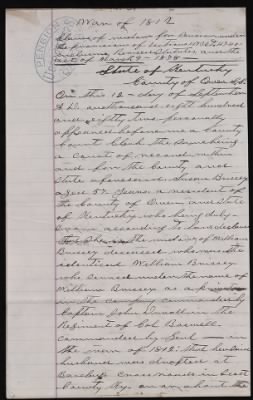 War of 1812
Claim of widow for Pension under
the provisions of Sections 4736 to 4740
Revised Statutes, and the
act of March 9 - 1878
State of Kentucky
County of Owen S.S.
On this 12 day of September
A.D. one thousand eight hundred
and eighty two personally
appeared before me a County
Court Clerk the same being
a court of record within
and for the County and
State aforesaid Susan Bussey
aged 57 years a resident of
the County of Owen and State
of Kentucky who being duly
sworn according to law declares
that she is the widow of William
Bussey deceased who was the
identical William Bussey
who served under the name of
William Bussey as a
in the company commanded by
Captain John
Regiment of Col Boswell
commanded by Genl
in the war of 1812: that her said
husband was drafted at
Cross roads in
County Ky. on or about the